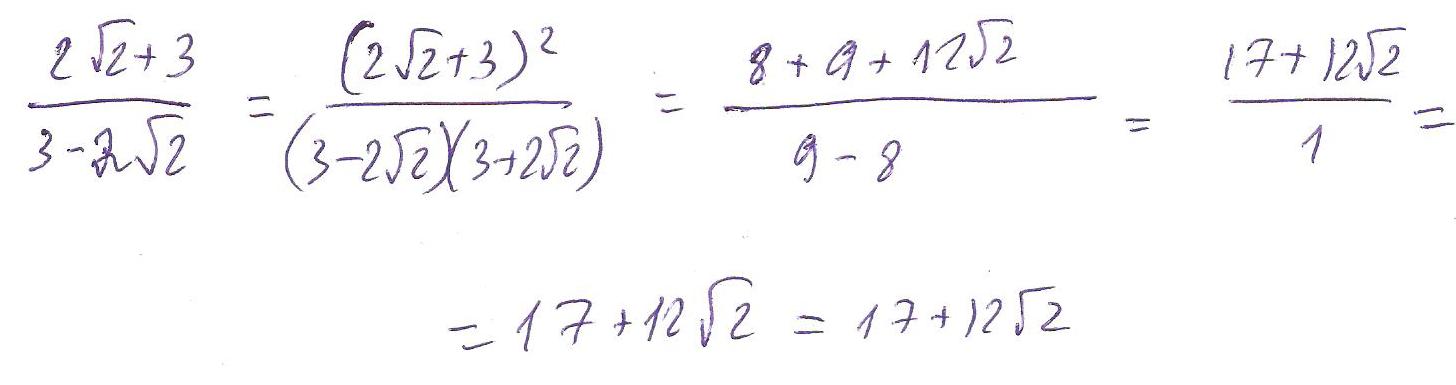 \frac{2\sqrt{2}+3}{3-2\sqrt{2}} = \frac{(2\sqrt{2}+3)^2}{(3-2\sqrt{2})(3+2\sqrt{2})} = \frac{8+9+12\sqrt{2}}{9-8} = \frac{17+12\sqrt{2}}{1} =
= 17+12\sqrt{2} = 17+12\sqrt{2}